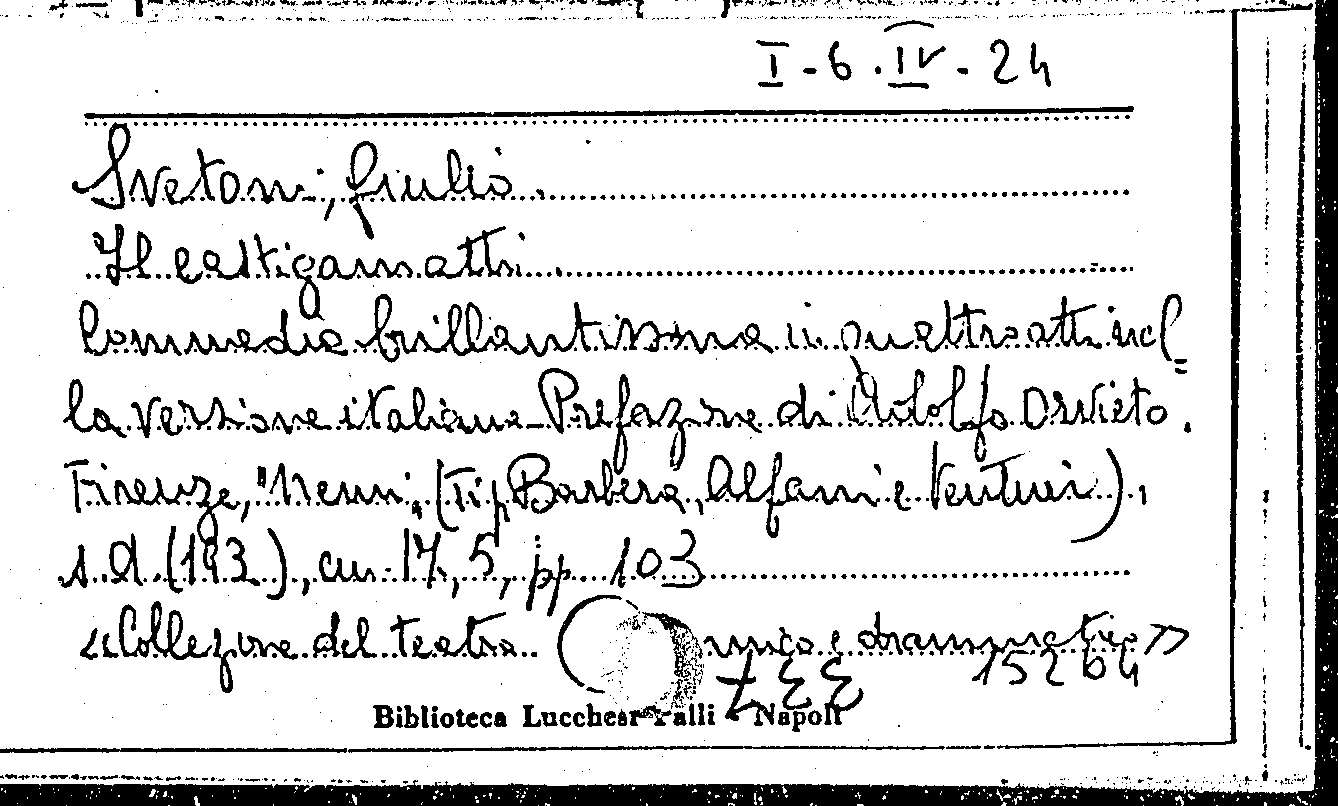 I-6.IV-24
Svetoni, Giulio.
Il castigamatti.
Commedia brillantissima in quattro atti nel=
la versione italiana - Prefazione di Adolfo Orvieto.
Firenze, "Nemi", (Tip. Barbera, Alfani e Venturi),
s.d. (193.), cm. 17,5, pp. 103
«Collezione del teatro mico e drammatico»
15264
Biblioteca Lucchesi Palli - Napoli